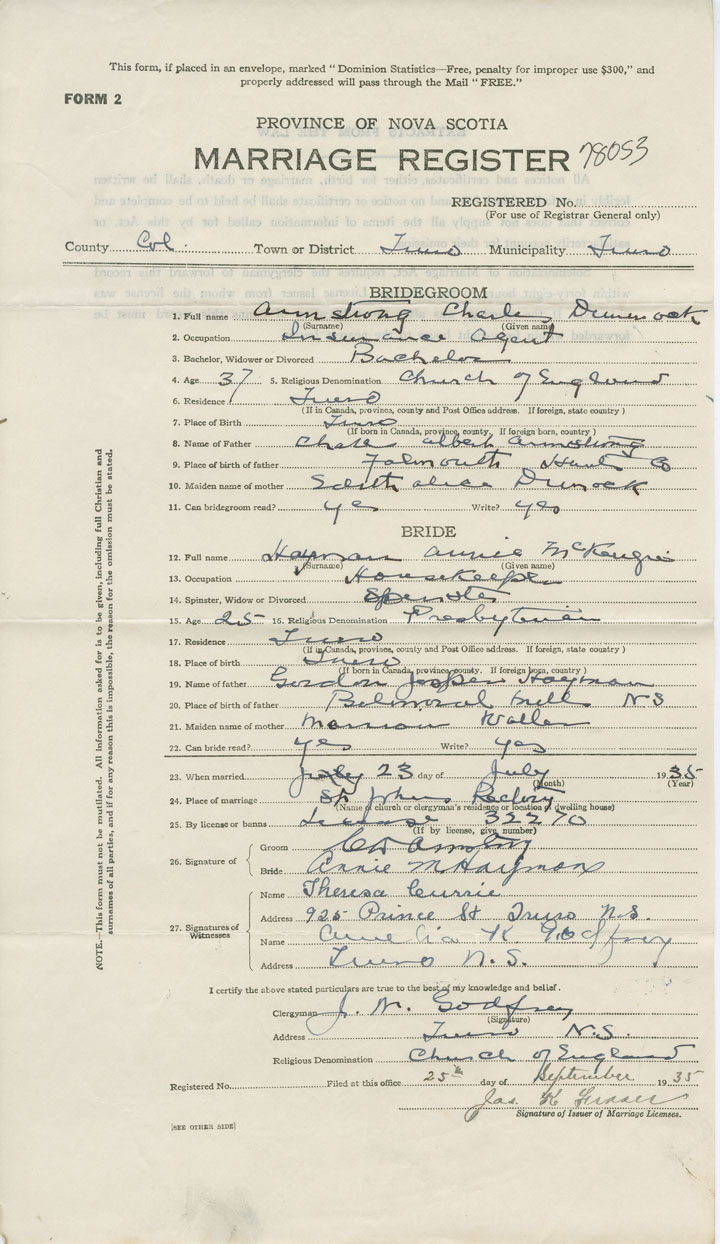 This form, if placed in an envelope, marked "Dominion Statistics—Free, penalty for improper use $300," and
properly addressed will pass through the Mail "FREE."
FORM 2
PROVINCE OF NOVA SCOTIA
MARRIAGE REGISTER 78053
REGISTERED No.
(For use of Registrar General only)
County Col. Town or District Truro Municipality Truro
BRIDEGROOM
1. Full name Armstrong Charles Dimock
(Surname) (Given name)
2. Occupation Insurance Agent
3. Bachelor, Widower or Divorced Bachelor
4. Age 37 5. Religious Denomination Church of England
6. Residence Truro
(If in Canada, province, county and Post Office address. If foreign, state country)
7. Place of Birth Truro
(If born in Canada, province, county. If foreign born, country)
8. Name of Father Charles Albert Armstrong
9. Place of birth of father Falmouth Hants Co
10. Maiden name of mother Edith Alice Dimock
11. Can bridegroom read? yes Write? yes
BRIDE
12. Full name Hayman Annie McKenzie
(Surname) (Given name)
13. Occupation Housekeeper
14. Spinster, Widow or Divorced Spinster
15. Age 25 16. Religious Denomination Presbyterian
17. Residence Truro
(If in Canada, province, county and Post Office address. If foreign, state country)
18. Place of birth Truro
(If born in Canada, province, county. If foreign born, country)
19. Name of father Gordon Hayman
20. Place of birth of father Balmoral Mills NS
21. Maiden name of mother
22. Can bride read? yes Write? yes
23. When married 23 day of July 1935
(Month) (Year)
24. Place of marriage St Johns Rectory
(Name of church or clergyman's residence or location of dwelling house)
25. By license or banns License 32270
(If by license, give number)
26. Signature of
Groom
Bride Annie M Hayman
27. Signatures of Witnesses
Name Theresa Currie
Address 925 Prince St Truro N.S.
Name Amelia K Godfrey
Address Truro N.S.
I certify the above stated particulars are true to the best of my knowledge and belief.
Clergyman J. M. Godfrey
(Signature)
Address Truro N.S.
Religious Denomination Church of England
Registered No. Filed at this office 25th day of September 1935
Jas. K Fraser
Signature of Issuer of Marriage Licenses.
[SEE OTHER SIDE]
NOTE.—This form must not be mutilated. All information asked for is to be given, including full Christian and
surnames of all parties, and if for any reason this is impossible, the reason for the omission must be stated.